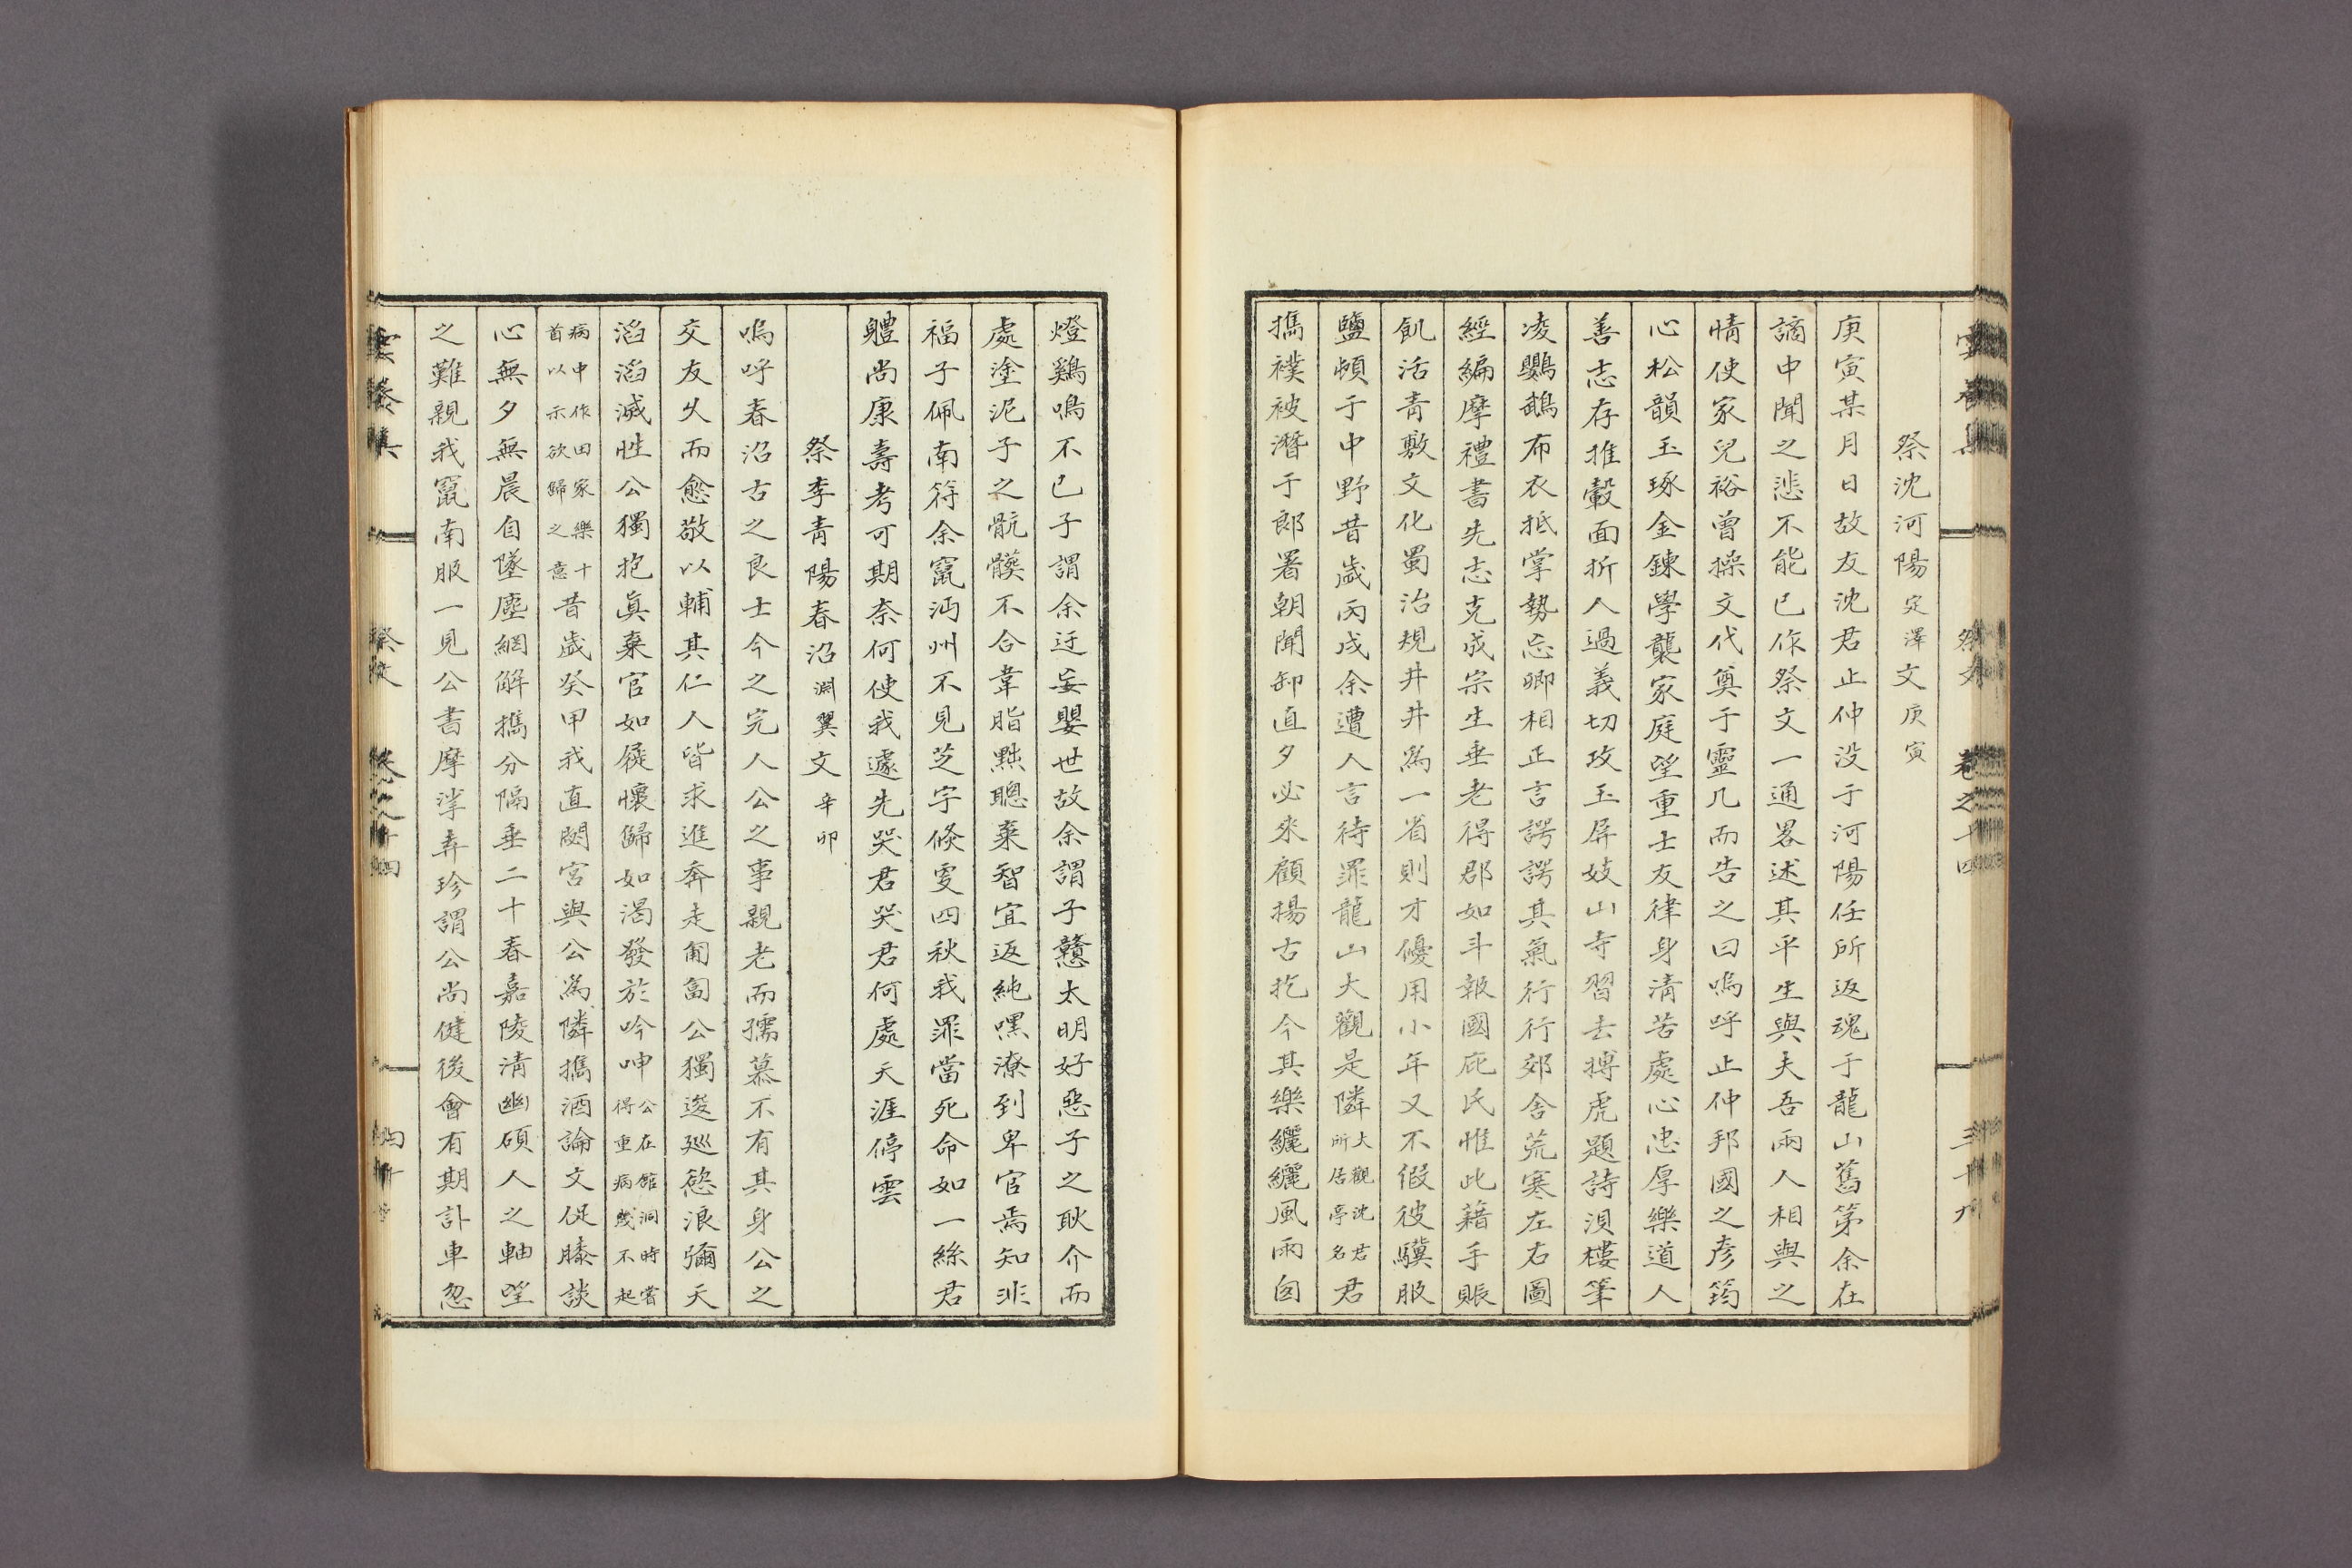 祭沈河陽定澤文庚寅
庚寅某月日故友沈君止仲没于河陽任所返魂于龍山舊第余在
謫中聞之悲不能已作祭文一通畧述其平生與夫吾兩人相與之
情使家兒裕曾操文代奠于靈几而告之曰嗚呼止仲邦國之彥筠
心松韻玉琢金鍊學襲家庭望重士友律身清苦處心忠厚樂道人
善志存推轂面折人過義切攻玉屏妓山寺習去搏虎題詩浿樓筆
凌鸚鵡布衣抵掌勢忘卿相正言諤諤其氣行行郊舍荒寒左右圖
經編摩禮書先志克成宗生垂老得郡如斗報國庇民惟此藉手賑
飢活青敷文化蜀治規井井爲一省則才優用小年又不假彼驥服
鹽頔于中野昔歲丙戌余遭人言待罪龍山大觀是隣大觀沈君所居亭名君
携襆被潛于郎署朝聞卸直夕必來顧揚古扢今其樂纚纚風雨囱
燈鷄鳴不已子謂余迂妄嬰世故余謂子戇太明好惡子之耿介而
處塗泥子之骯髒不合韋脂黜聰棄智宜返純嘿潦到卑官焉知非
福子佩南符余竄沔州不見芝宇倐更四秋我罪當死命如一絲君
軆尚康壽考可期奈何使我遽先哭君哭君何處天涯停雲
祭李青陽春沼淵翼文辛卯
嗚呼春沼古之良士今之完人公之事親老而孺慕不有其身公之
交友久而愈敬以輔其仁人皆求進奔走匍匐公獨逡巡慾浪彌天
滔滔滅性公獨抱眞棄官如屣懷歸如渴發於吟呻公在館洞時嘗得重病幾不起
病中作田家樂十首以示欲歸之意昔歲癸甲我直閟宮與公爲隣携酒論文促膝談
心無夕無晨自墜塵網解携分隔垂二十春嘉陵清幽碩人之軸望
之難親我竄南服一見公書摩挲弄珍謂公尚健後會有期訃車忽